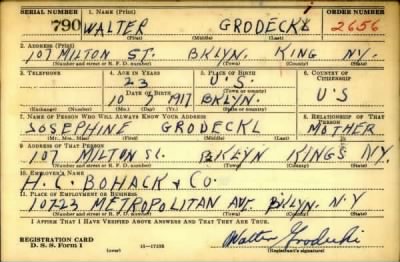 SERIAL NUMBER 1. NAME (Print) ORDER NUMBER
790 WALTER GRODECKI 2656
(First) (Middle) (Last)
2. ADDRESS (Print)
107 MILTON ST. BKLYN. KING NY.
(Number and street or R. F. D. number) (Town) (County) (State)
3. TELEPHONE 4. AGE IN YEARS 5. PLACE OF BIRTH 6. COUNTRY OF CITIZENSHIP
23 U.S.
DATE OF BIRTH (Town or county) U S
10 1917 BKLYN.
(Exchange) (Number) (Mo.) (Day) (Yr.) (State or country)
7. NAME OF PERSON WHO WILL ALWAYS KNOW YOUR ADDRESS 8. RELATIONSHIP OF THAT PERSON
JOSEPHINE GRODECKI MOTHER
(Mr., Mrs., Miss) (First) (Middle) (Last)
9. ADDRESS OF THAT PERSON
107 MILTON St. BKLYN KINGS N.Y.
(Number and street or R. F. D. number) (Town) (County) (State)
10. EMPLOYER'S NAME
H. C. BOHACK & CO.
11. PLACE OF EMPLOYMENT OR BUSINESS
10723 METROPOLITAN AVE. BKLYN. N.Y
(Number and street or R. F. D. number) (Town) (County) (State)
I AFFIRM THAT I HAVE VERIFIED ABOVE ANSWERS AND THAT THEY ARE TRUE.
REGISTRATION CARD
D. S. S. Form 1 16—17105 Walter Grodecki
(Registrant's signature)